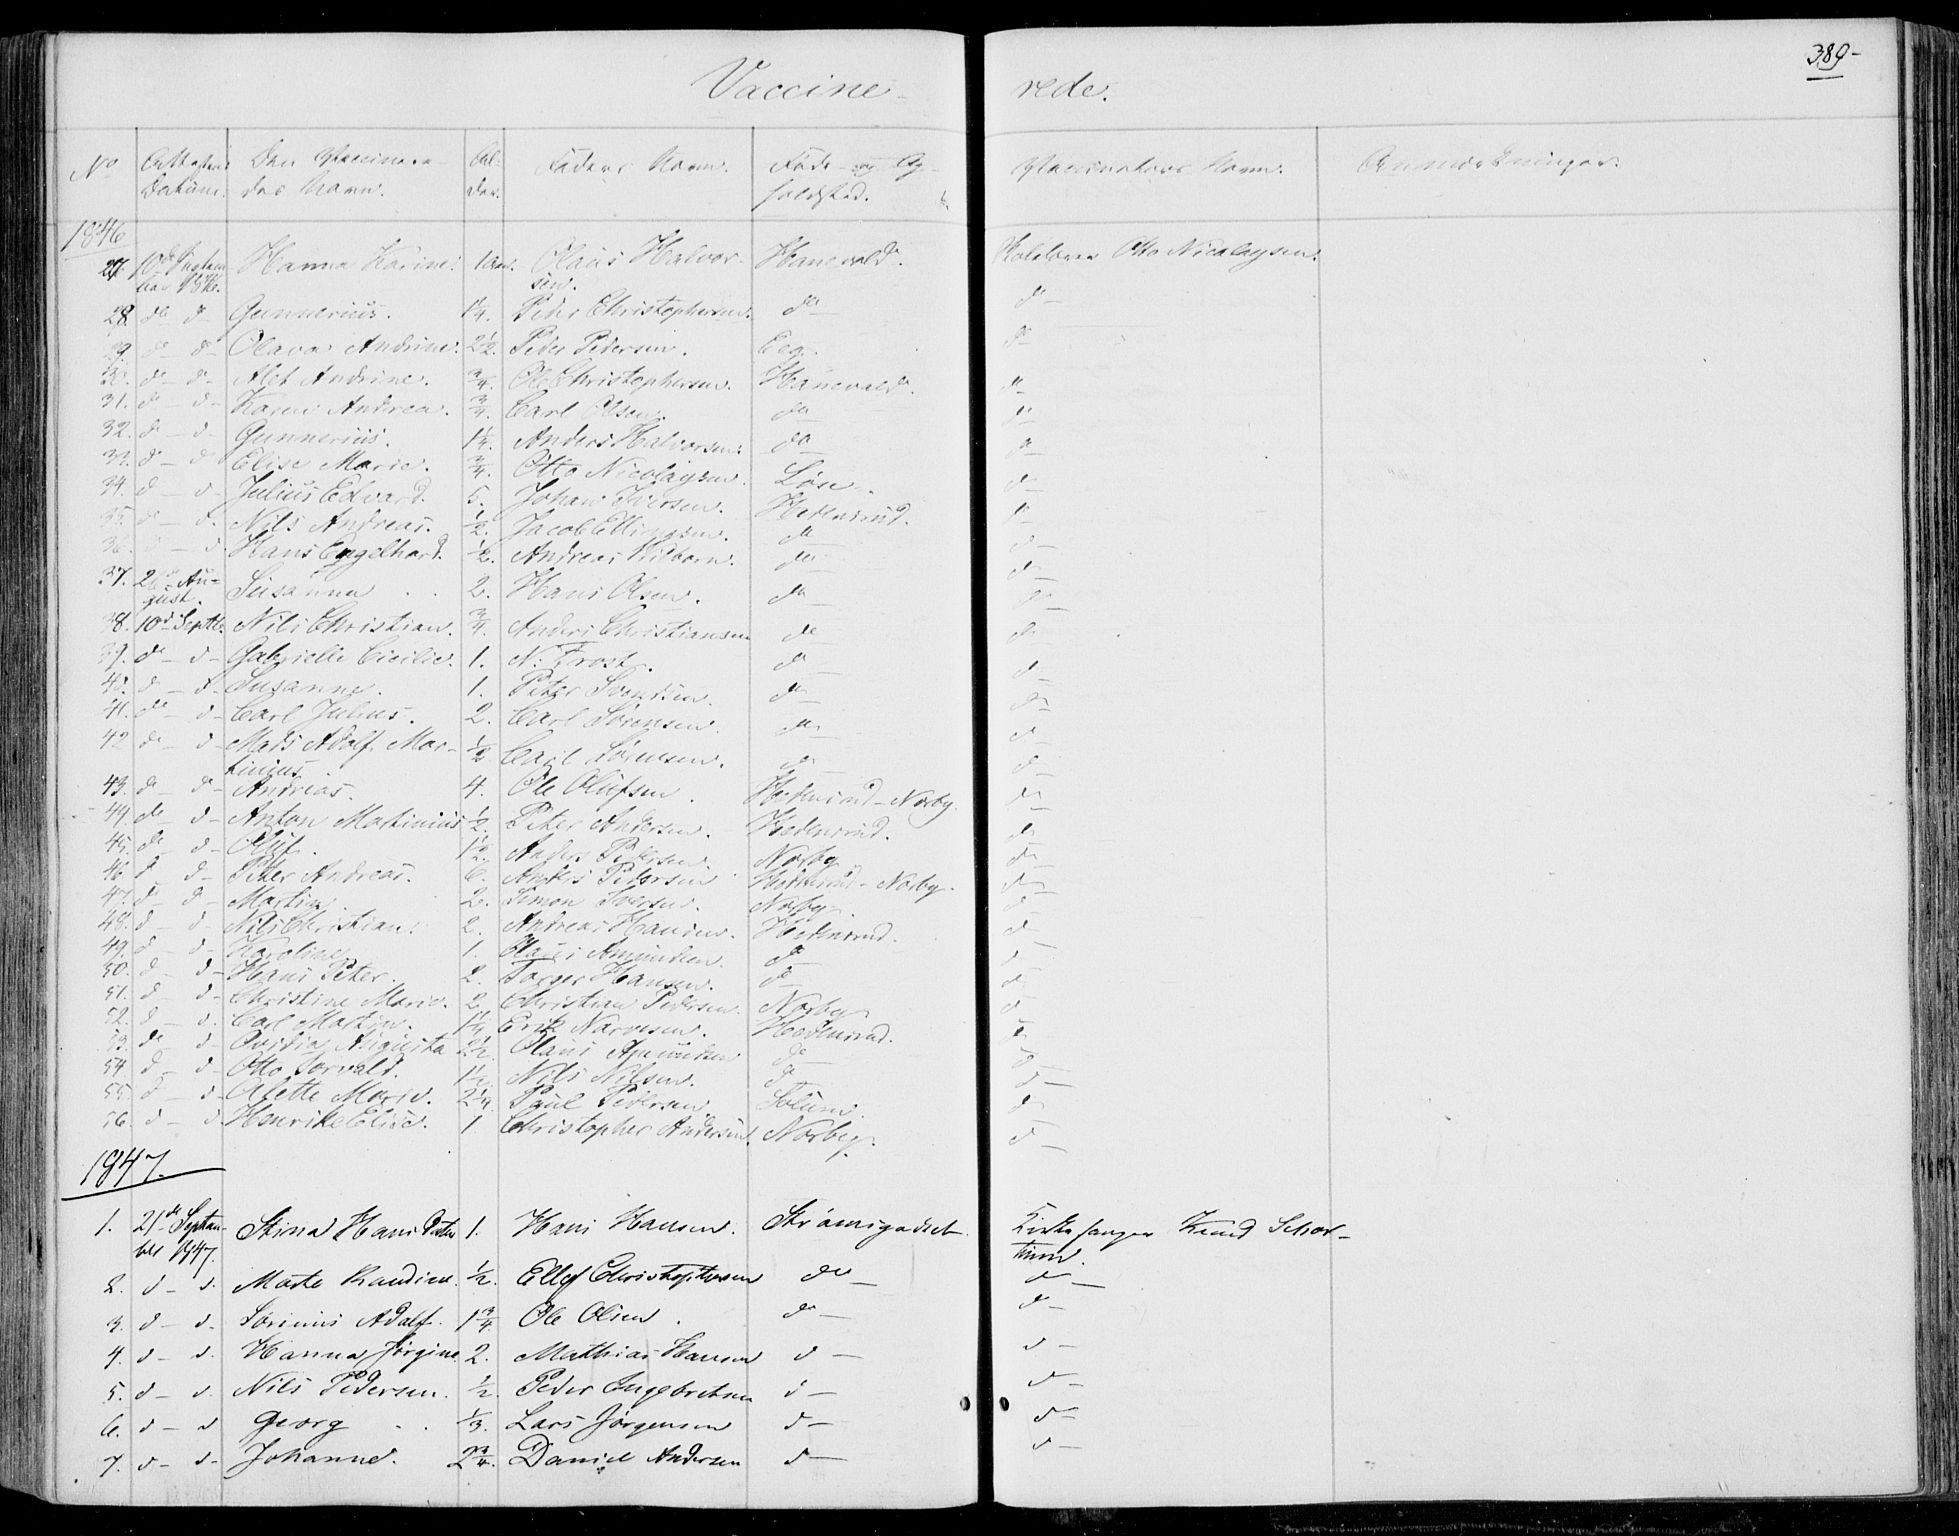 389-
Vaccine- rede.
No Attestens Den Vaccinere- Al- Faders Navn. Føde- og Op- Vaccinateurs Navn. Anmærkninger.
Datum. des Navn. der. holdsted.
1846
27. 10de Septem- Hanna Karine. 1 Aar. Olaus Halvor- Hanevold. Otto Nicolaysen.
ber 1846. sen.
28. do d- Gunnerius. 1¼. Peder Christophersen. do- d-
29. d- d- Olava Andrine. 2½. Peder Pedersen. d-
30. d- d- Alet Andrine. ¾. Ole Christophersen. Hanevold. d-
31. d- d- Karen Andrea. ¾. Carl Olsen. do d-
32. d- d- Gunnerius. 1¼. Anders Halvorsen. do d-
33. d- d Elise Marie. ¾. Otto Nicolaysen. Løse. d-
34. d- d- Julius Edvard. 5. Johan Iversen. Hedensrud. d-
35. d- d. Nils Andreas. ½. Jacob Ellingsen. d- d-
36. d- d Hans Engelhard. ½. Andreas do- d-
37. Au- Susanna 2. Hans Olsen. do- d-
gust.
38. 10d Septbr. Nils Christian. ¾. Anders Christiansen do d-
39. d- d- Gabrielle Cicilie. 1. N. Frost. d- d-
40. d- d- Susanne. 1. Peter Svendsen. d- d-
41. do- d- Carl Julius. 2. Carl Sørensen. d- d-
42 d- d- Mads Adolf Mar- ½ Carl Sørensen. d- d-
tinius.
43. d- d- Andreas. 4. Ole Olufsen. Hedensrud-Norby. d-
44. do- d- Anton Martinius ½. Peter Andersen. Hedensrud. d-
45. do- d- Oluf. 1½. Anders Pedersen. Norby d-
46. d d- Peter Andreas. 6. Anders Pedersen Hedensrud-Norby. d-
47. d- d- Martin. 2. Simon Iversen. Norby. d-
48. d- d- Nils Christian. 2. Andreas Hansen. Hedensrud. d-
49. d- d- Karoline. 1. Olaus Amundsen. d- d-
50. d- d- Hans Peter. 2. Torger Hansen. d- d-
51. d- d- Christine Marie. 2. Christian Pedersen. Norby d-
52. d- d. Carl Martin. 1¼. Erik Narvesen. Hedensrud. d-
53. do- d- Ovidia Augusta 2½. Olaus Amundsen d- d-
54. d- d- Otto Torvald. 1½. Nils Nilsen. d- d-
55. d- d- Alette Marie. 2¼. Paul Pedersen. Solum. d-
56. d- d- Henrike Elise. 1. Christopher Andersen. Norby. d-
1847.
1. 21de Septem- Stina Hans Datter 1. Hans Hansen. Strømsgodset. Kirkesanger Knud Schor-
ber 1847. tum.
2. d- d. Marte Randine. ½. Ellef Christophersen do- d-
3. d- d- Sørinus Adolf. 1¾. Ole Olsen. do- d-
4. d- d. Hanna Jørgine. 2. Mathias Hansen d- d-
5. d- d. Nils Pedersen. ½. Peder Ingebretsen d- d-
6. d- d Georg 1/3. Lars Jørgensen d- d-
7. d- d- Johanne. 2¾. Daniel Andersen d- d-